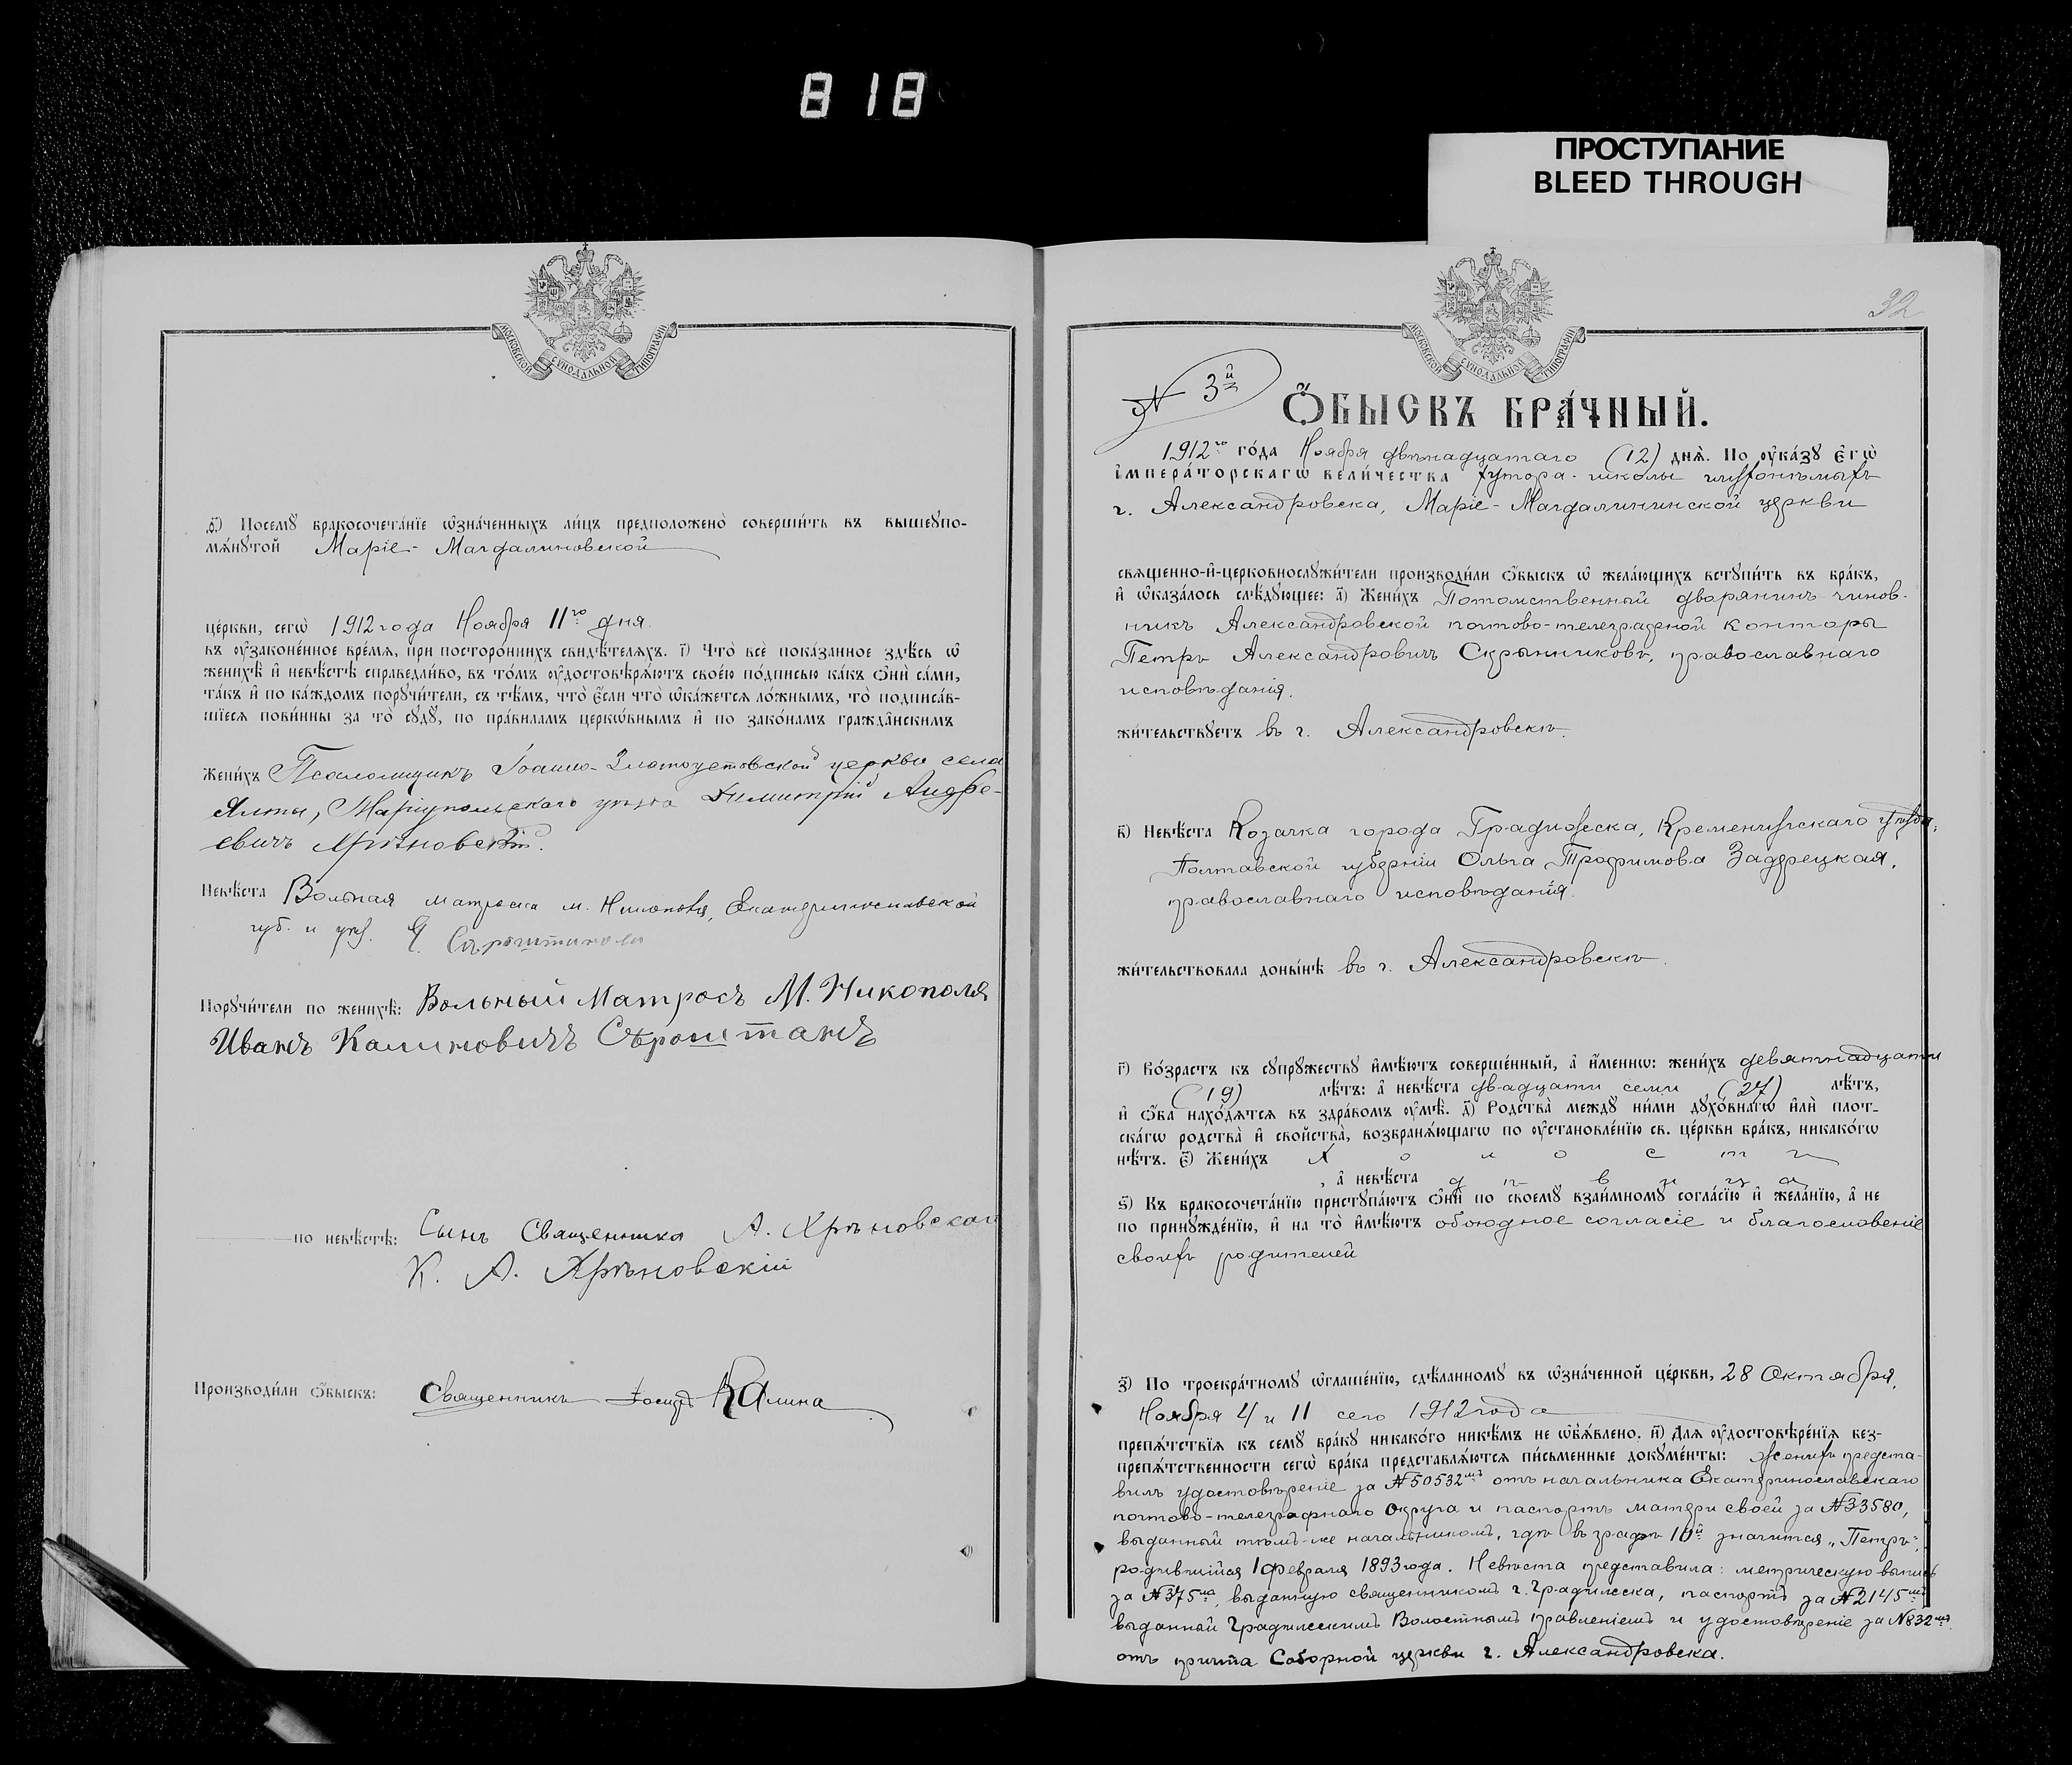 818
ПРОСТУПАНИЕ
BLEED THROUGH
МОСКОВСКОЙ СѴНОДАЛЬНОЙ ТИПОГРАФІИ
ѳ҃) Посемꙋ бракосочета́нїе ѡ҆зна́ченныхъ ли́цъ предположено̀ соверши́ть въ вышеꙋпо-
мѧ́нꙋтой Маріе-Магдалиновской
це́ркви, сегѡ̀ 1912 года Ноября 11го дня.
въ оу҆зако́ненное вре́мѧ, при посторо́ннихъ свидѣ́телѧхъ. і҃) Что̀ всѐ пока́занное здѣ́сь ѡ҆
женихѣ̀ и҆ невѣ́стѣ справедли́во, въ то́мъ оу҆достовѣрѧ́ютъ свое́ю по́дписью ка́къ ѻ҆нѝ са́ми,
та́къ и҆ по ка́ждомъ порꙋчи́тели, съ тѣ́мъ, что̀ є҆́сли что̀ ѡ҆ка́жетсѧ ло́жнымъ, то̀ подписа́в-
шїесѧ пови́нны за то̀ сꙋдꙋ̀, по пра́виламъ церкѡ́внымъ и҆ по зако́намъ гражда́нскимъ
Жени́хъ Псаломщикъ Іоанно-Златоустовской церкви села
Ялты, Маріупольскаго уѣзда Димитрій Андре-
евичъ Хрѣновскій.
Невѣ́ста Вольная матроска м. Никополя, Екатеринославской
губ. и уѣз.
Порꙋчи́тели по женихѣ̀: Вольный Матросъ М. Никополя
Иванъ Калиновичъ Сѣроштанъ
по невѣ́стѣ: Сынъ Священника А. Хрѣновскій
К. А. Хрѣновскій
Производи́ли ѻ҆́быскъ: Священникъ Іосифъ Калина
32
МОСКОВСКОЙ СѴНОДАЛЬНОЙ ТИПОГРАФІИ
№ 3й
Ѻ҆́БЫСКЪ БРА́ЧНЫЙ.
1912го го́да Ноября двѣнадцатаго (12) днѧ̀. По оу҆ка́зꙋ є҆гѡ̀
і҆мпера́торскагѡ вели́чества хутора-школы
г. Александровска, Маріе-Магдалининской церкви
свѧще́нно-и҆-церковнослꙋжи́тели производи́ли ѻ҆́быскъ ѡ҆ жела́ющихъ встꙋпи́ть въ бра́къ,
и҆ ѡ҆каза́лось слѣ́дꙋющее: а҃) Жени́хъ Потомственный дворянинъ чинов-
никъ Александровской почтово-телеграфной конторы
Петръ Александровичъ Скрынниковъ, православнаго
исповѣданія.
жи́тельствꙋетъ въ г. Александровскѣ.
в҃) Невѣ́ста Козачка города Градижска, Кременчугскаго уѣзда,
Полтавской губерніи Ольга Трофимова Задрецкая,
православнаго исповѣданія.
жи́тельствовала доны́нѣ въ г. Александровскѣ.
г҃) Во́зрастъ къ сꙋпрꙋ́жествꙋ и҆мѣ́ютъ соверше́нный, а҆ и҆́меннѡ: жени́хъ девятнадцати
(19) лѣ́тъ: а҆ невѣ́ста двадцати семи (27) лѣ́тъ,
и҆ ѻ҆́ба нахо́дѧтсѧ въ здра́вомъ оу҆мѣ̀. д҃) Родства̀ междꙋ̀ ни́ми дꙋхо́внагѡ и҆лѝ плот-
ска́гѡ родства̀ и҆ свойства̀, возбранѧ́ющагѡ по оу҆становле́нїю св. це́ркви бра́къ, никако́гѡ
нѣ́тъ. є҃) Жени́хъ холостъ
, а҆ невѣ́ста дѣвица
ѕ҃) Къ бракосочета́нїю пристꙋпа́ютъ ѻ҆нѝ по своемꙋ̀ взаи́мномꙋ согла́сїю и҆ жела́нїю, а҆ не
по принꙋжде́нїю, и҆ на то̀ и҆мѣ́ютъ обоюдное согласіе и благословеніе
своихъ родителей
з҃) По троекра́тномꙋ ѡ҆глаше́нїю, сдѣ́ланномꙋ въ ѡ҆зна́ченной це́ркви, 28 Октября,
Ноября 4 и 11 сего 1912 года
препѧ́тствїѧ къ семꙋ̀ бра́кꙋ никако́го никѣ́мъ не ѡ҆б̾ѧ́влено. и҃) Длѧ̀ оу҆достовѣре́нїѧ без-
препѧ́тственности сегѡ̀ бра́ка представлѧ́ютсѧ пи́сьменные докꙋме́нты: Женихъ предста-
вилъ удостовѣреніе за №50532мъ отъ начальника Екатеринославскаго
почтово-телеграфнаго Округа и паспортъ матери своей за №33580,
выданный тѣмъ-же начальникомъ, гдѣ въ графѣ 10й значится „Петръ",
родившійся 1 февраля 1893 года. Невѣста представила: метрическую выпись
за №375мъ, выданную священникомъ г. Градижска, паспортъ за №2145мъ
выданный Градижскимъ Волостнымъ правленіемъ и удостовѣреніе за №832мъ
отъ причта Соборной церкви г. Александровска.